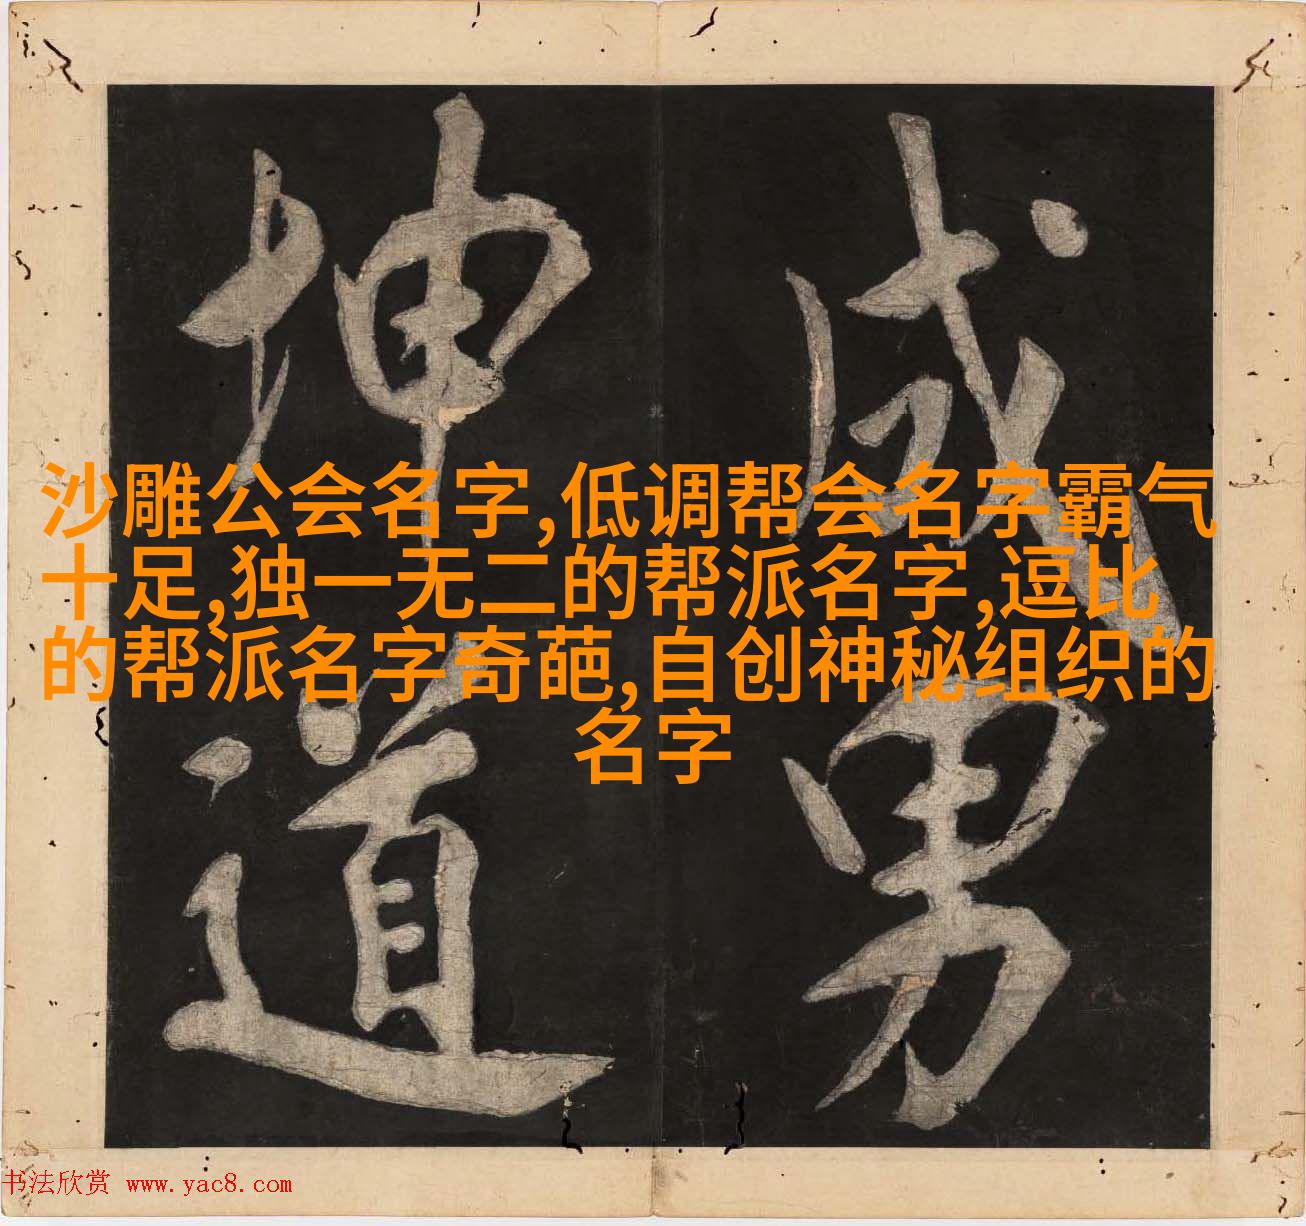 成男
坤道
沙雕公会名字,低调帮会名字霸气
十足,独一无二的帮派名字,逗比
的帮派名字奇葩,自创神秘组织的
名字
书法欣赏 www.yac8.com